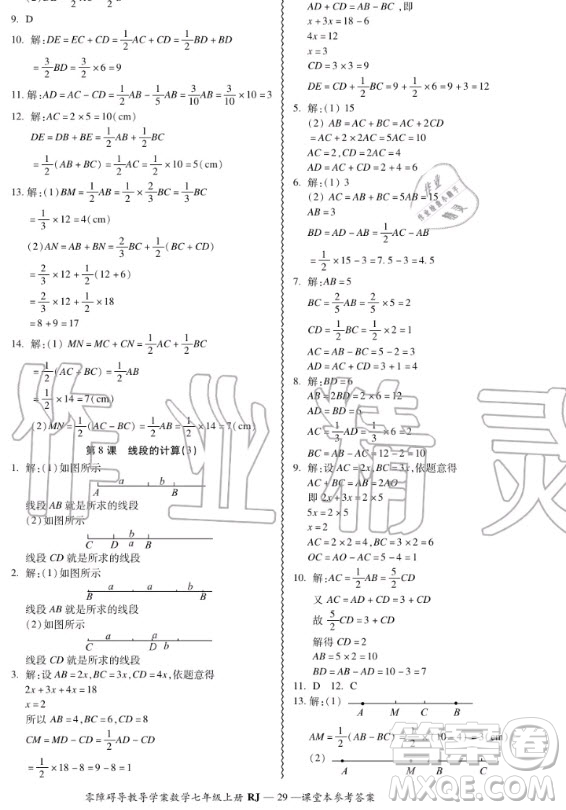 9. D
10. 解:DE=EC+CD=1/2AC+CD=1/2BD+BD
=3/2BD=3/2×6=9
11. 解:AD=AC-CD=1/2AB-1/5AB=3/10AB=3/10×10=3
12. 解:AC=2×5=10(cm)
DE=DB+BE=1/2AB+1/2BC
=1/2(AB+BC)=1/2AC=1/2×10=5(cm)
13. 解:(1)BM=1/2AB,AB=1/3BC
=1/3×12=4(cm)
(2)AN=AB+BN=2/3BC+1/2(BC+CD)
=2/3×12+1/2(12+6)
=2/3×12+1/2×18
=8+9=17
14. 解:(1) MN=MC+CN=1/2AC+1/2BC
=1/2(AC+BC)=1/2AB
=1/2×14=7(cm)
(2)MN=1/2(AC-BC)=1/2×14=7(cm)
第8课 线段的计算(3)
1. 解:(1)如图所示
a b
A B
线段 AB 就是所求的线段
(2)如图所示
b
C D a B
线段 CD 就是所求的线段
2. 解:(1)如图所示
a a b
A B
线段 AB 就是所求的线段
(2)如图所示
a b
C D a
线段 CD 就是所求的线段
3. 解:设 AB=2x,BC=3x,CD=4x,依题意得
2x+3x+4x=18
x=2
所以 AB=4,BC=6,CD=8
CM=MD-CD=1/2AD-CD
=1/2×18-8=1
AD+CD=AB-BC,即
x+3x=18-6
4x=12
x=3
CD=3×3=9
DE=CD+1/2BC=9+1/2×6=9+3=12
5. 解:(1) 15
(2) AB=AC+BC=AC+2CD
=AC+2×2AC=5AC=10
AC=2,CD=2AC=4
AD=AC+CD=2+4=6
6. 解:(1) 3
(2) AC=AB+BC=5AB=15
AB=3
BD=AD-AB=1/2AC-AB
=1/2×15-3=7.5-3=4.5
7. 解:AB=5
BC=2/5AB=2/5×5=2
CD=1/2BC=1/2×2=1
AC=AB-BC=5-2=3
AD=AC+CD=3+1=4
8. 解:BD=6
AB=2BD=2×6=12
AD=BD=6
AC=1/3AD=1/3×6=2
BC=AB-AC=12-2=10
9. 解:设AC=2x,BC=3x,依题意得
AC+BC=AB=2AO
即 2x+3x=2×5
5x=2×5
x=2
AC=2×2=4,BC=3×2=6
OC=AO-AC=5-4=1
10. 解:AC=1/2AB=5/2CD
又 AC=AD+CD=3+CD
故 5/2CD=3+CD
解得 CD=2
AB=5CD=5×2=10
BD=AB-AD=10-3=7
11. D 12. C
13. 解:(1)
A M C B
(2)
A M B C
零障碍导教导学案数学七年级上册 RJ —29—课堂本参考答案
作业精灵